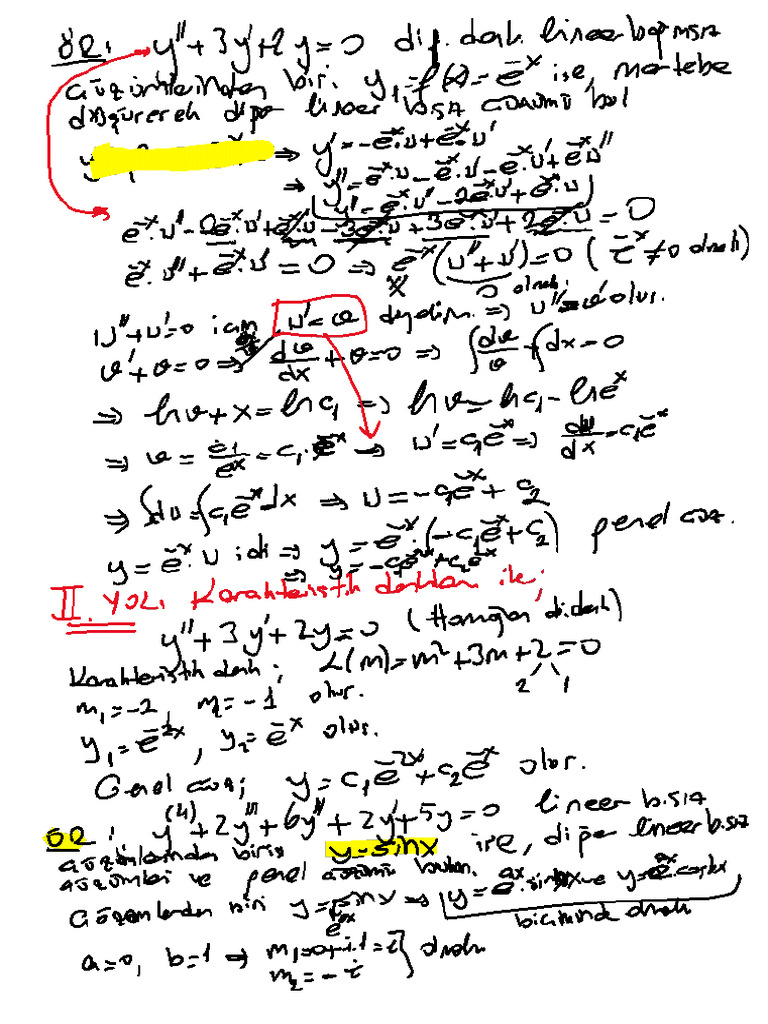 ÖR: y'' + 3y' + 2y = 0 dif. denk. lineer bağımsız
çözümlerinden biri y₁ = f(x) = e⁻ˣ ise, mertebe
düşürerek diğer lineer bsız çözümü bul
⇒ y' = -e⁻ˣ.u + e⁻ˣ.u'
⇒ y'' = e⁻ˣ.u - e⁻ˣ.u' - e⁻ˣ.u' + e⁻ˣ u''
y'' = e⁻ˣ.u'' - 2e⁻ˣ.u' + e⁻ˣ.u
e⁻ˣ.u'' - 2e⁻ˣ.u' + e⁻ˣ.u - 3e⁻ˣ.u + 3e⁻ˣ.u' + 2e⁻ˣ.u = 0
e⁻ˣ.u'' + e⁻ˣ.u' = 0 ⇒ e⁻ˣ (u'' + u') = 0 (e⁻ˣ ≠ 0 olmalı)
0 olmalı
u'' + u' = 0 için u' = v diyelim. ⇒ u'' = v' olur.
v' + v = 0 ⇒ dv/dx + v = 0 ⇒ ∫dv/v + ∫dx = 0
⇒ ln v + x = ln c₁ ⇒ ln v = ln c₁ - ln eˣ
⇒ v = c₁/eˣ = c₁.e⁻ˣ → u' = c₁e⁻ˣ ⇒ du/dx = c₁e⁻ˣ
⇒ ∫du = ∫c₁e⁻ˣ dx ⇒ u = -c₁e⁻ˣ + c₂
y = e⁻ˣ.u idi ⇒ y = e⁻ˣ.(-c₁e⁻ˣ + c₂) genel çöz.
⇒ y = -c₁e⁻²ˣ + c₂e⁻ˣ
II. YOL: Karakteristik denklem ile;
y'' + 3y' + 2y = 0 (Homojen di.denk)
Karakteristik denk; L(m) = m² + 3m + 2 = 0
2 1
m₁ = -2, m₂ = -1 olur.
y₁ = e⁻²ˣ, y₂ = e⁻ˣ olur.
Genel çöz; y = c₁e⁻²ˣ + c₂e⁻ˣ olur.
ÖR: y⁽⁴⁾ + 2y''' + 6y'' + 2y' + 5y = 0 lineer b.sız
çözümlerinden birisi y = sinx ise, diğer lineer b.sız
çözümleri ve genel çözümü bulun.
Çözümlerden biri y = sinx ⇒ y = eᵃˣ.sinbx ve y = eᵃˣ.cosbx
e⁰ˣ
biçiminde olmalı
a = 0, b = 1 ⇒ m₁ = 0 + i.1 = i
m₂ = -i } olmalı